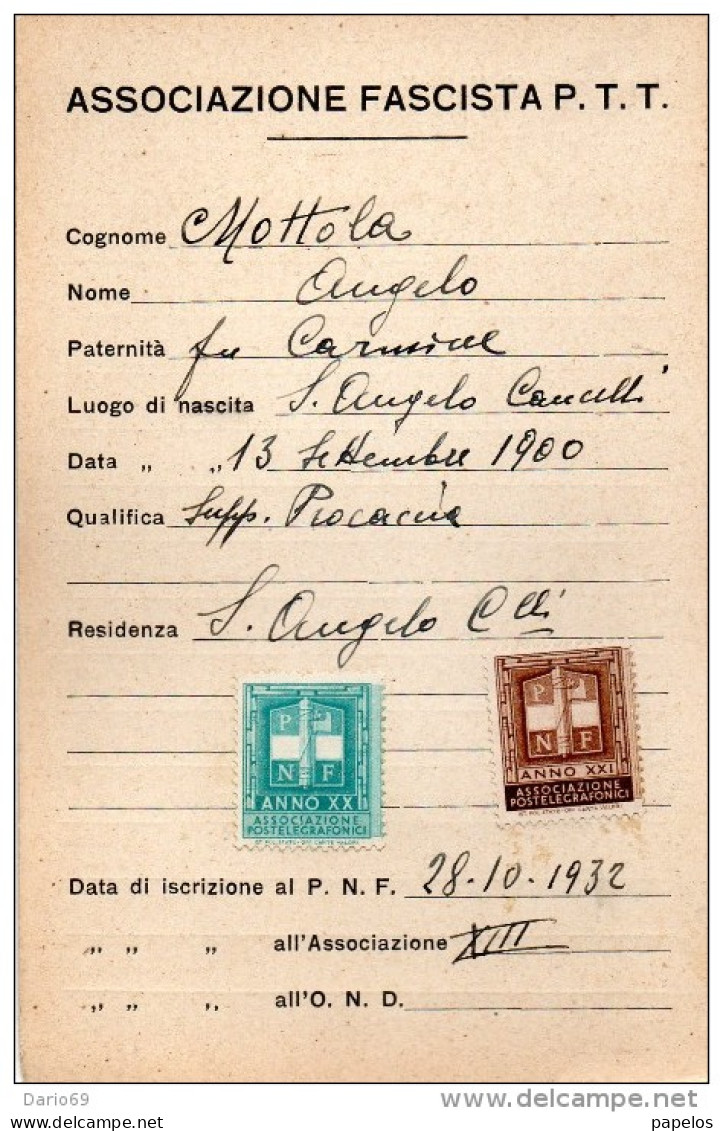 ASSOCIAZIONE FASCISTA P. T. T.
Cognome Mottola
Nome Angelo
Paternità fu Carmine
Luogo di nascita S. Angelo Cancelli
Data „ „ 13 Settembre 1900
Qualifica Supp. Procaccia
Residenza S. Angelo Clli
P N F
ANNO XX
ASSOCIAZIONE
POSTELEGRAFONICI
IST. POL. STATO - OFF. CARTE VALORI
P N F
ANNO XXI
ASSOCIAZIONE
POSTELEGRAFONICI
IST. POL. STATO - OFF. CARTE VALORI
Data di iscrizione al P. N. F. 28.10.1932
„ „ „ all'Associazione XIII
„ „ „ all'O. N. D.
Dario69
delcampe.net
papelos